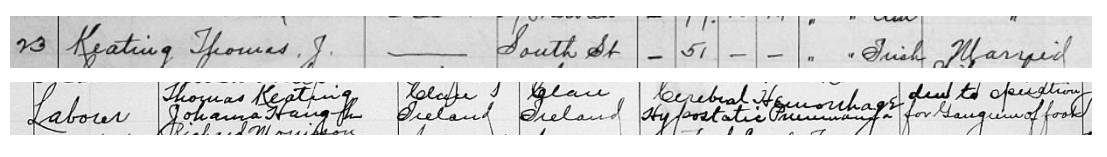 23 Keating Thomas. J. —— South St — 51 — — " " Irish Married
Thomas Keating Clare Clare Cerebral Hemorrhage due to operation
Laborer Johanna Ireland Ireland Hypostatic Pneumonia for Gangrene of foot